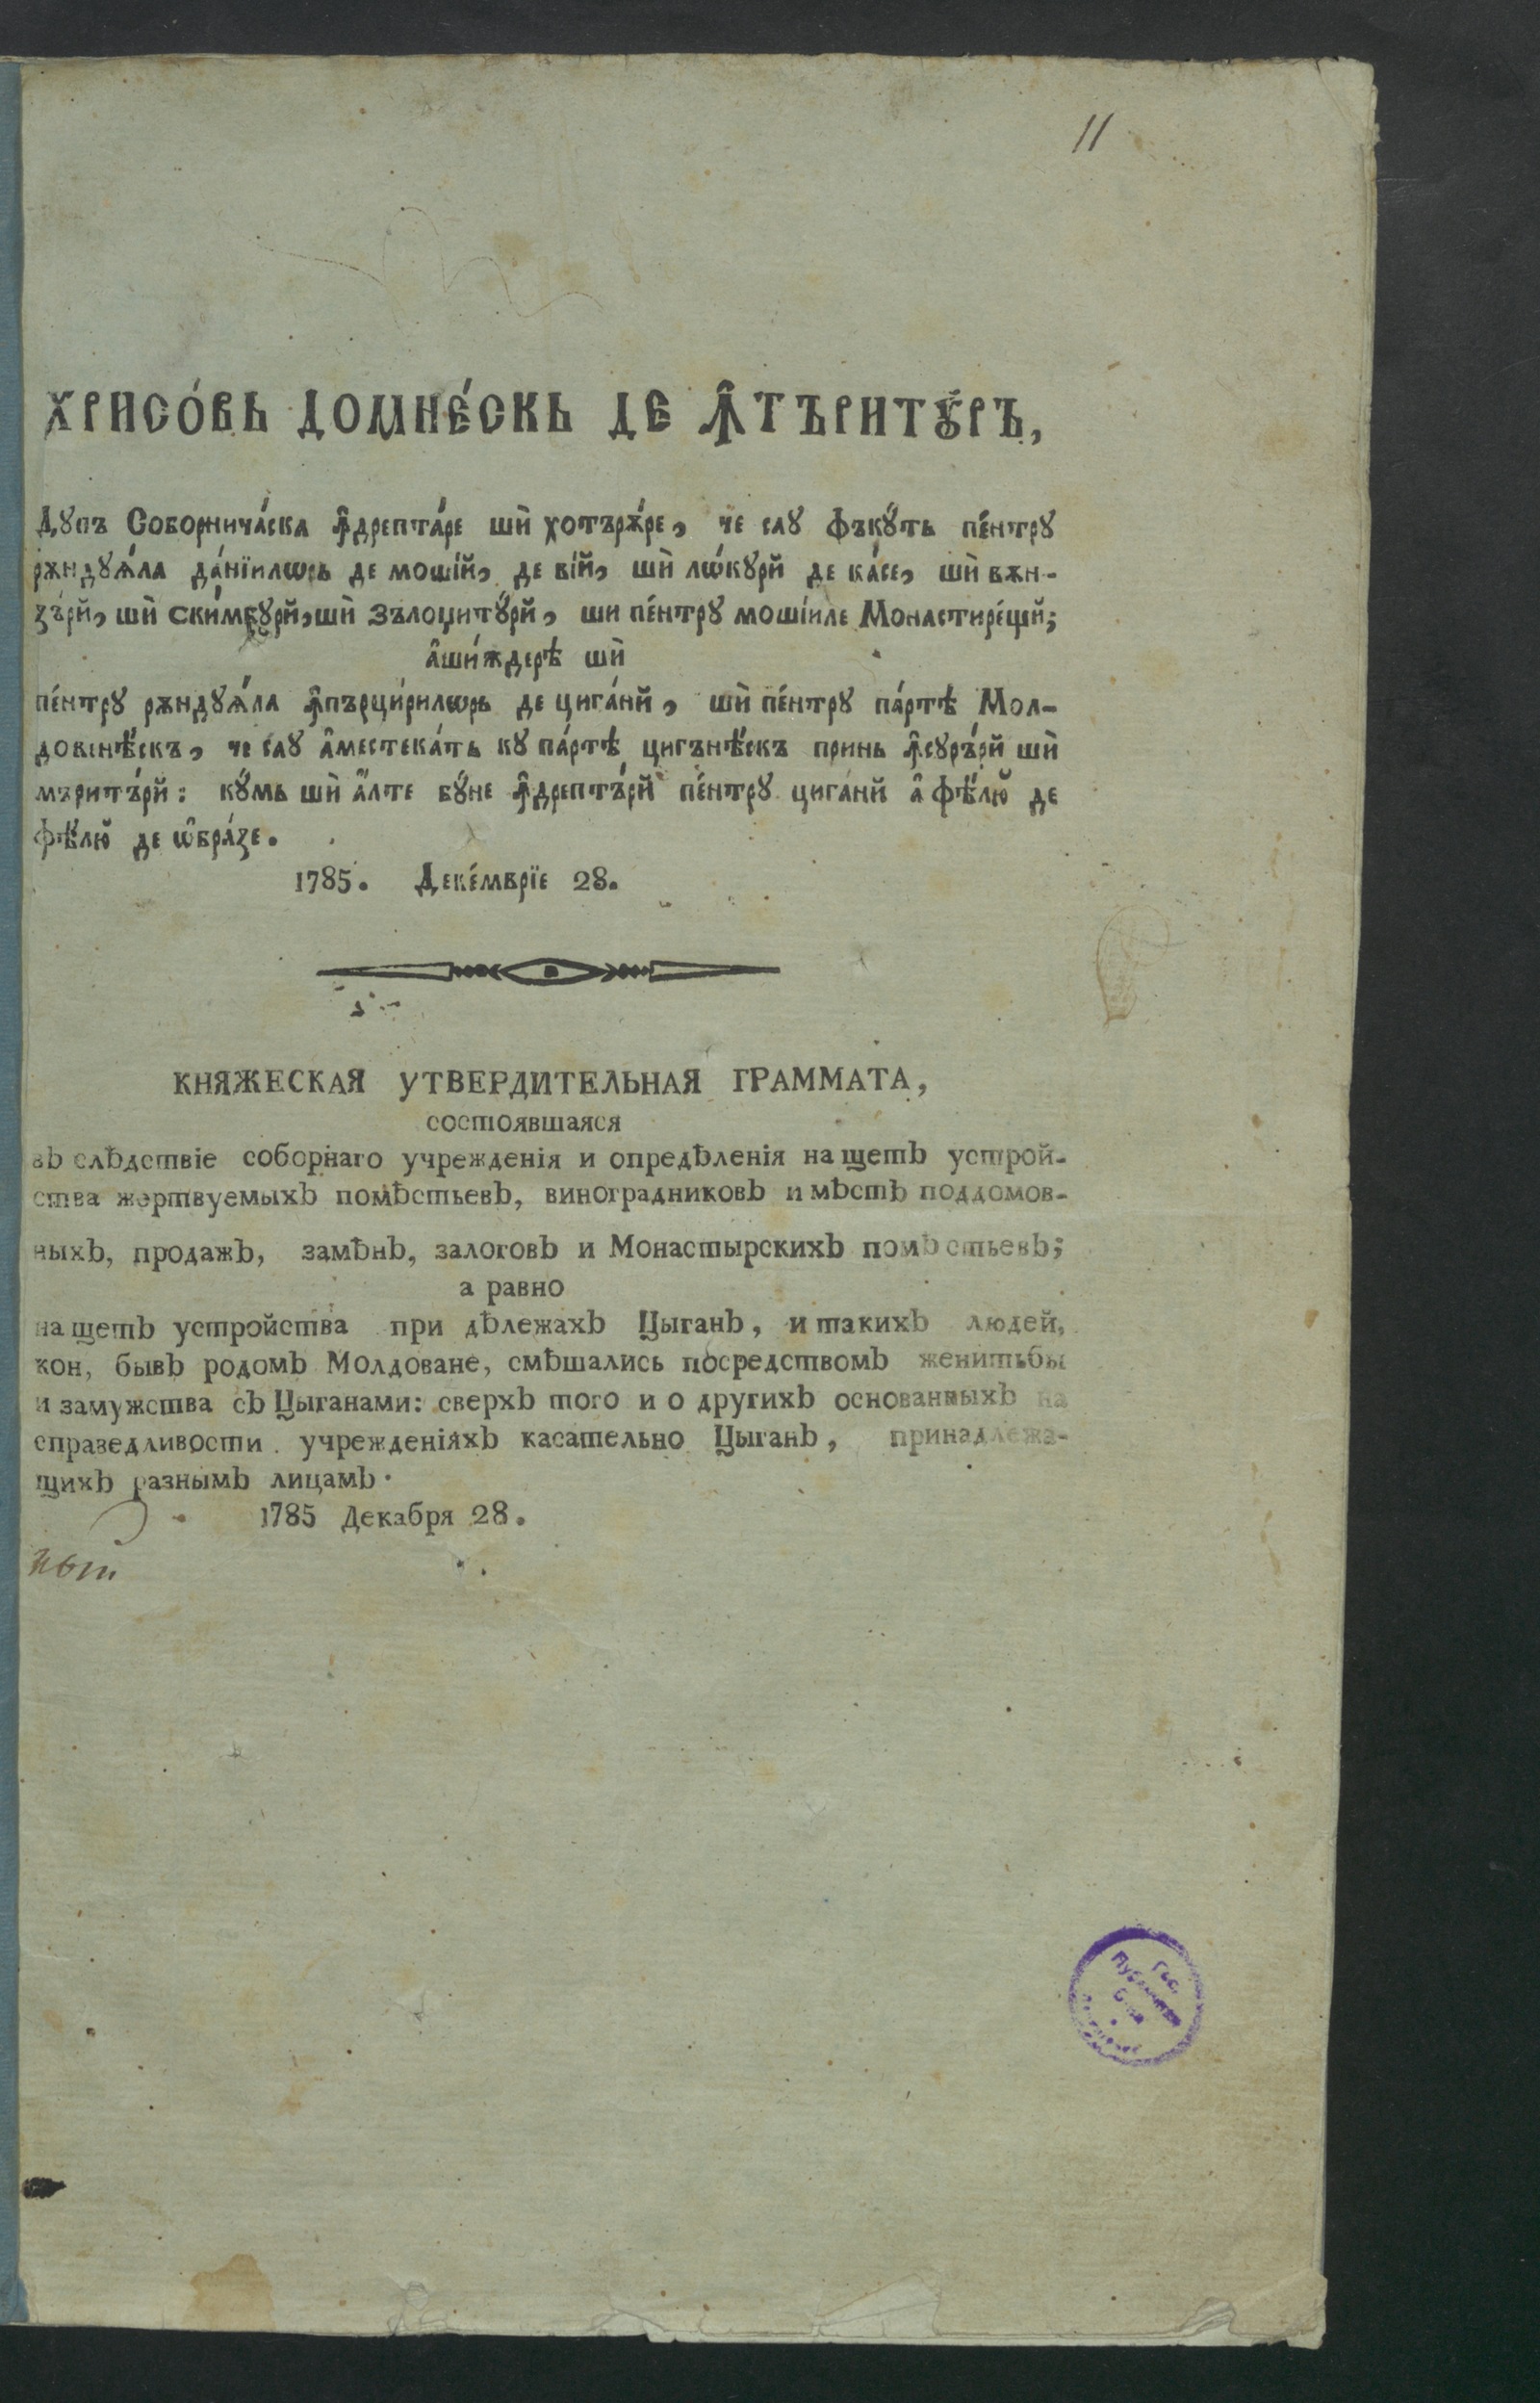 11
ХРИСО́ВЬ ДОМНЕ́СКЬ ДЕ ꙞТЪРИТꙊ́РЪ,
Дупъ Соборничѧ́ска ꙟ҆дрепта́ре шѝ хотърѫ́ре, че сау фъкꙋ́ть пе́нтру
рѫндуѧ́ла да́нїилѡрь де мошїй, де вїй, шѝ лѡ́курй де ка́се, шѝ вѫн-
ꙁъ́рй, шѝ ски́мбурй, шѝ зълоџитꙋ́рй, ши пе́нтру мошїиле Монастире́щй;
а҆ши́ждерѣ шѝ
пе́нтру рѫндуѧ́ла ꙟ҆пърци́рилѡрь де цига́нй, шѝ пе́нтру па́ртѣ Мол-
довѣнѣ́скъ, че сау а҆местека́ть ку па́ртѣ цигънѣ́скъ принь ꙟ҆суръ́рй шѝ
мъритъ́рй: кꙋ́мь шѝ а҆́лте бꙋ́не ꙟ҆дрептъ́рй пе́нтру цига́нй а҆ фѣ́лю̆ де
фѣ́лю̆ де ѡ҆бра́ꙁе.
1785. Деке́мврїе 28.
КНЯЖЕСКАЯ УТВЕРДИТЕЛЬНАЯ ГРАММАТА,
состоявшаяся
въ слѣдствіе соборнаго учрежденія и опредѣленія на щетъ устрой-
ства жертвуемыхъ помѣстьевъ, виноградниковъ и мѣстъ поддомов-
ныхъ, продажъ, замѣнъ, залоговъ и Монастырскихъ помѣстьевъ;
а равно
на щетъ устройства при дѣлежахъ Цыганъ, и такихъ людей,
кои, бывъ родомъ Молдоване, смѣшались посредствомъ женитьбы
и замужства съ Цыганами: сверхъ того и о другихъ основанныхъ на
справедливости учрежденіяхъ касательно Цыганъ, принадлежа-
щихъ разнымъ лицамъ.
1785 Декабря 28.
Гос.
Публичная